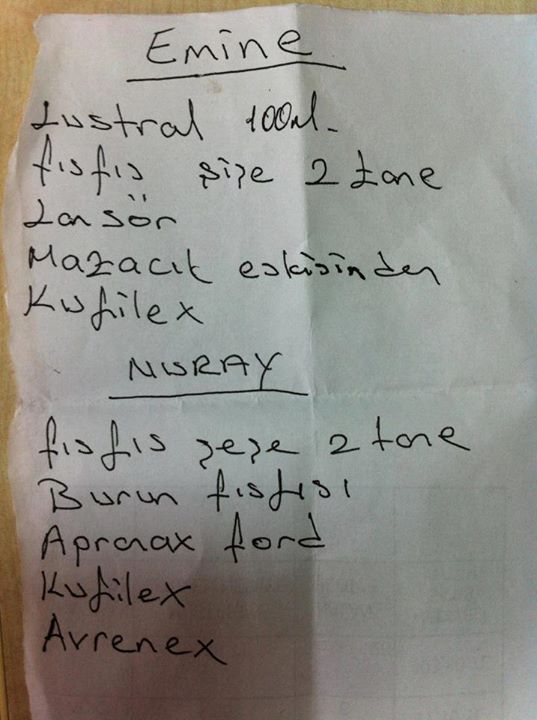 Emine
Lustral 100ml.
fısfıs şişe 2 tane
Lansör
Mazacıt eskisinden
Kufilex
NURAY
fısfıs şeşe 2 tane
Burun fısfısı
Apranax ford
Kufilex
Avrenex